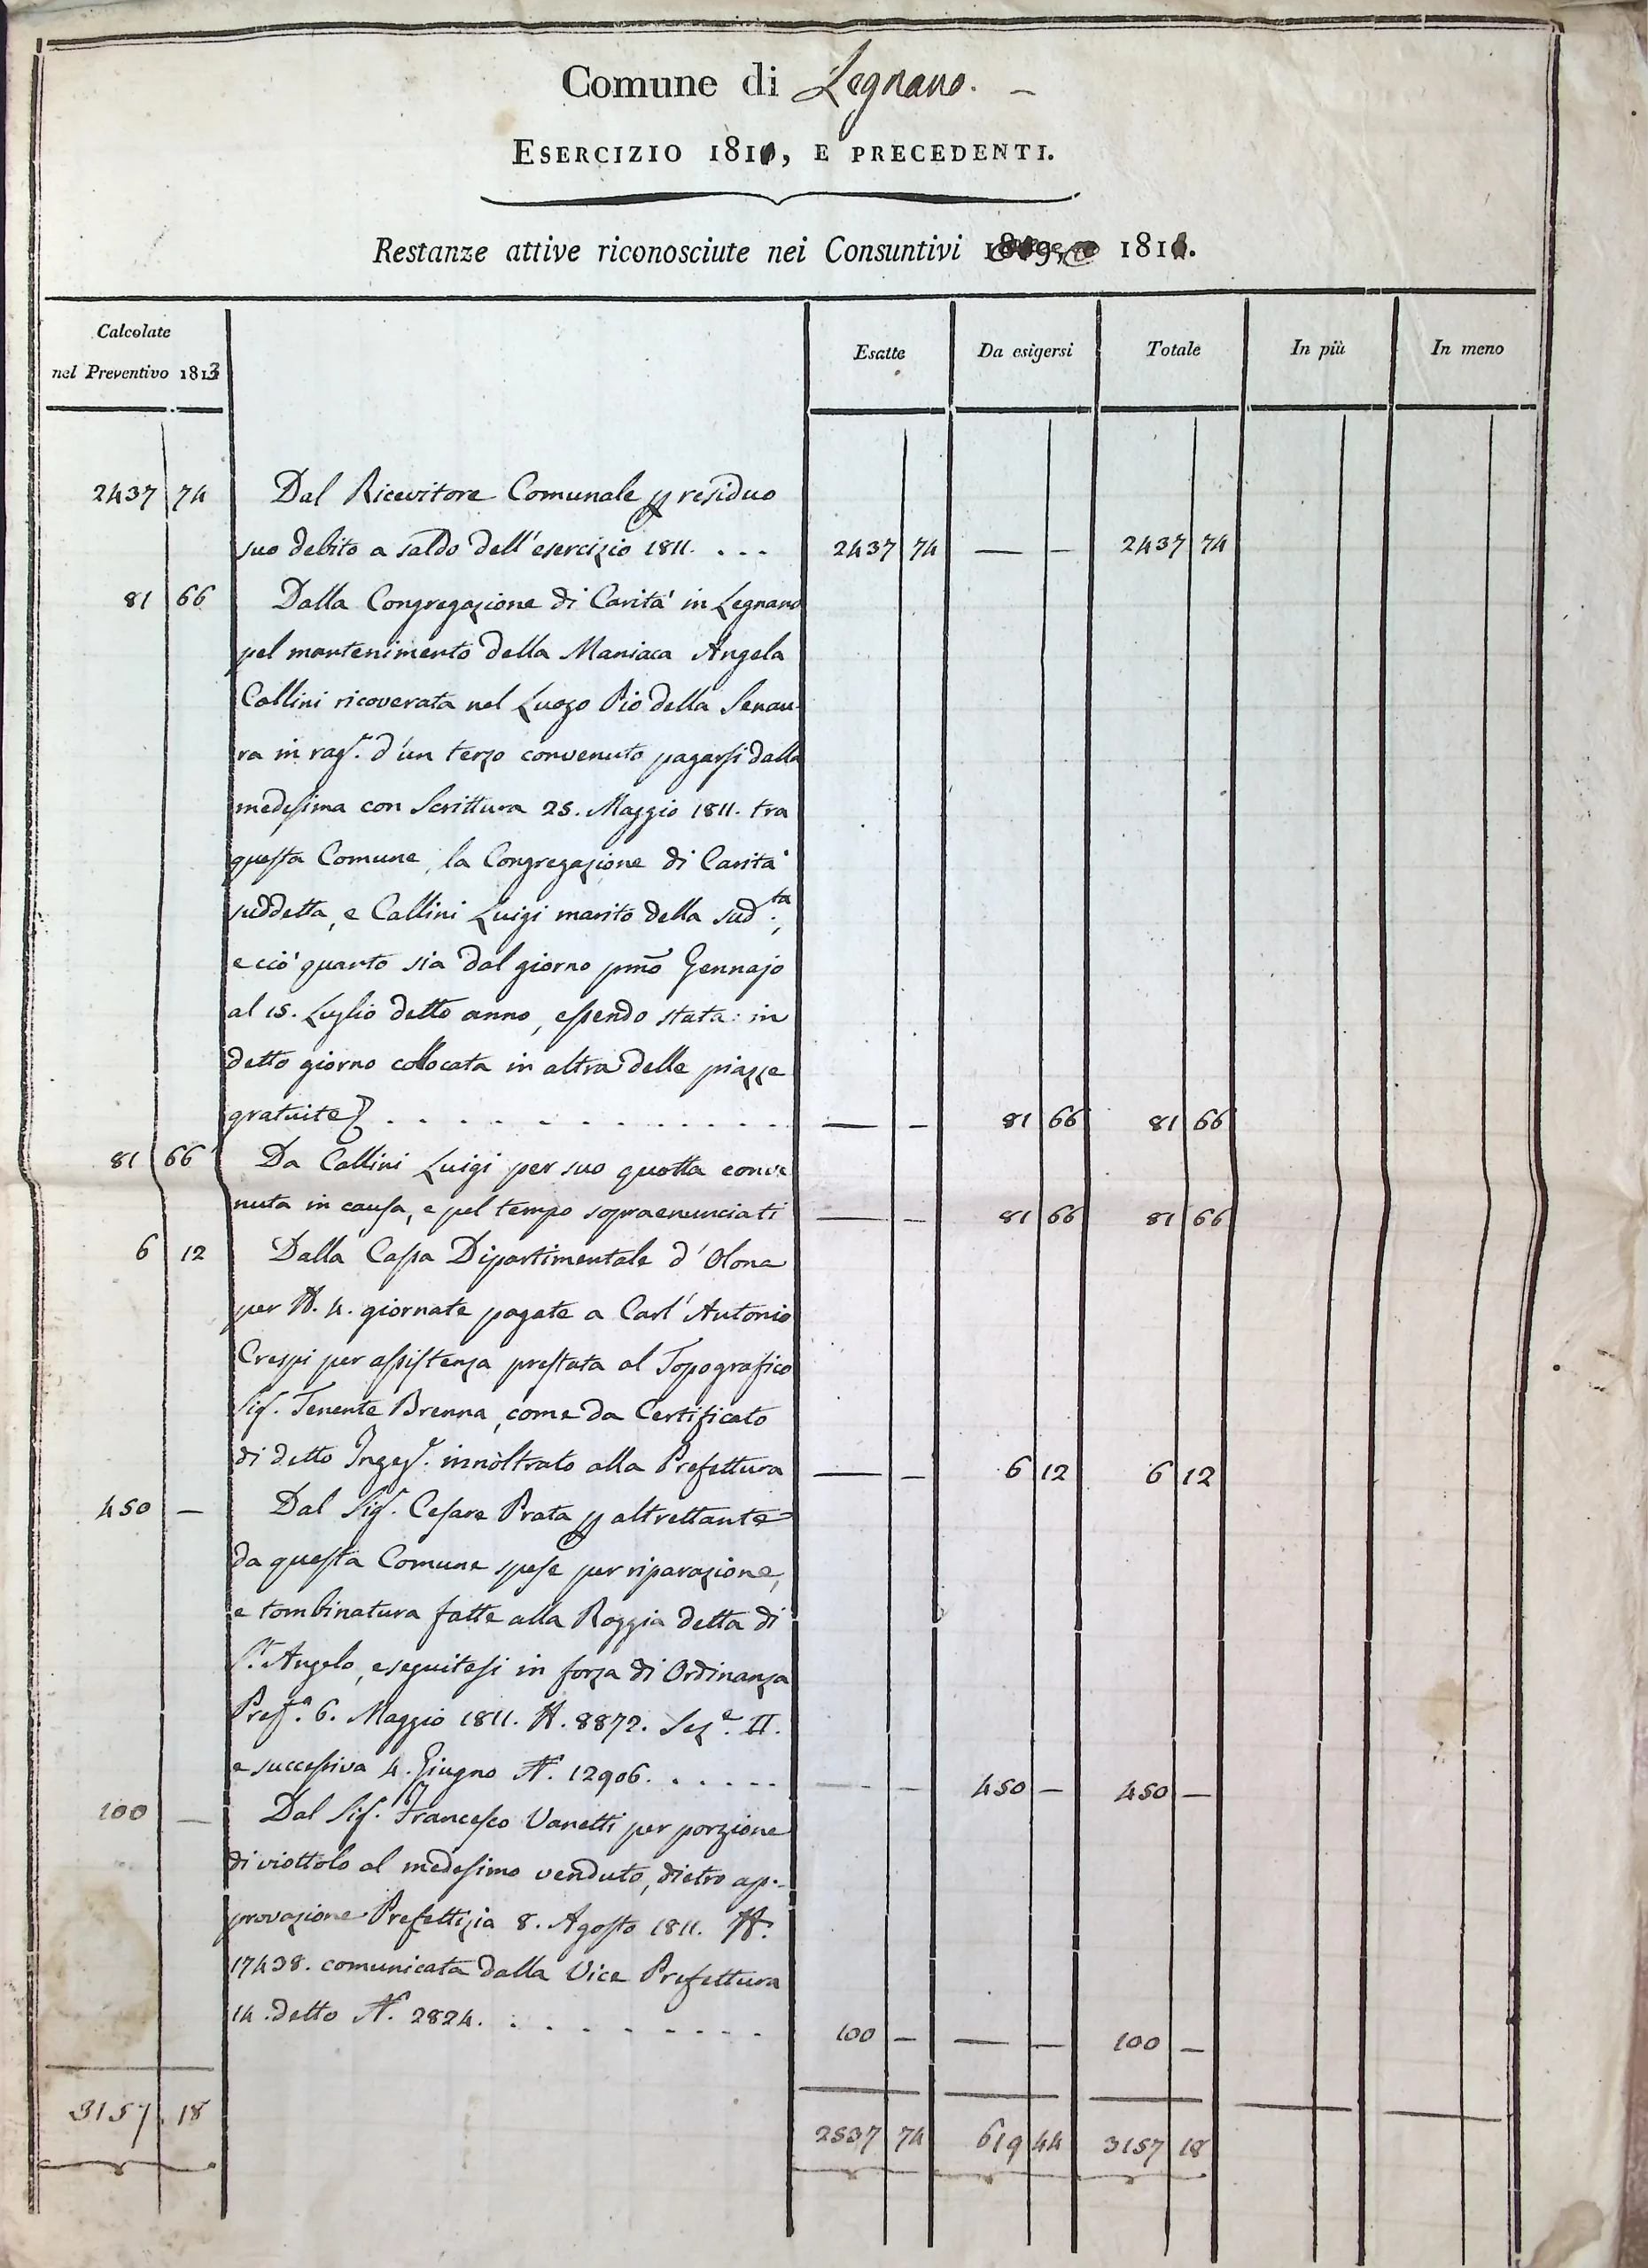 Comune di Legnano. -
ESERCIZIO 1811, E PRECEDENTI.
Restanze attive riconosciute nei Consuntivi 1811.
Calcolate
nel Preventivo 1813
Esatte
Da esigersi
Totale
In più
In meno
2437 74 Dal Ricevitore Comunale p residuo
suo debito a saldo dell'esercizio 1811. ... 2437 74 — — 2437 74
81 66 Dalla Congregazione di Carità in Legnano
pel mantenimento della Maniaca Angela
Callini ricoverata nel Luogo Pio della Senau-
ra in rag.e d'un terzo convenuto pagarsi dalla
medesima con Scrittura 25. Maggio 1811. tra
questa Comune, la Congregazione di Carità
suddetta, e Callini Luigi marito della sud.ta,
e ciò quanto sia dal giorno pmo Gennajo
al 15. Luglio detto anno, essendo stata in
detto giorno collocata in altra delle piazze
gratuite . . . . . . . . . . . — — 81 66 81 66
81 66 Da Callini Luigi per suo quotta conve
nuta in causa, e pel tempo sopraenunciati — — 81 66 81 66
6 12 Dalla Cassa Dipartimentale d'Olona
per N. 4. giornate pagate a Carl'Antonio
Crespi per assistenza prestata al Topografico
Sig.r Tenente Brenna, come da Certificato
di detto Ingeg.r innoltrato alla Prefettura — — 6 12 6 12
450 — Dal Sig.r Cesare Prata p altrettante
da questa Comune spese per riparazione,
e tombinatura fatte alla Roggia detta di
S.t Angelo, eseguitesi in forza di Ordinanza
Pref.a 6. Maggio 1811. N. 8872. Sez.e II.
e successiva 4. Giugno N. 12906. . . . . . — — 450 — 450 —
100 — Dal Sig.r Francesco Vanetti per porzione
di viottolo al medesimo venduto, dietro ap-
provazione Prefettizia 8. Agosto 1811. N.
17438. comunicata dalla Vice Prefettura
14. detto N. 2824. . . . . . . . . 100 — — — 100 —
3157. 18 2537 74 619 44 3157 18